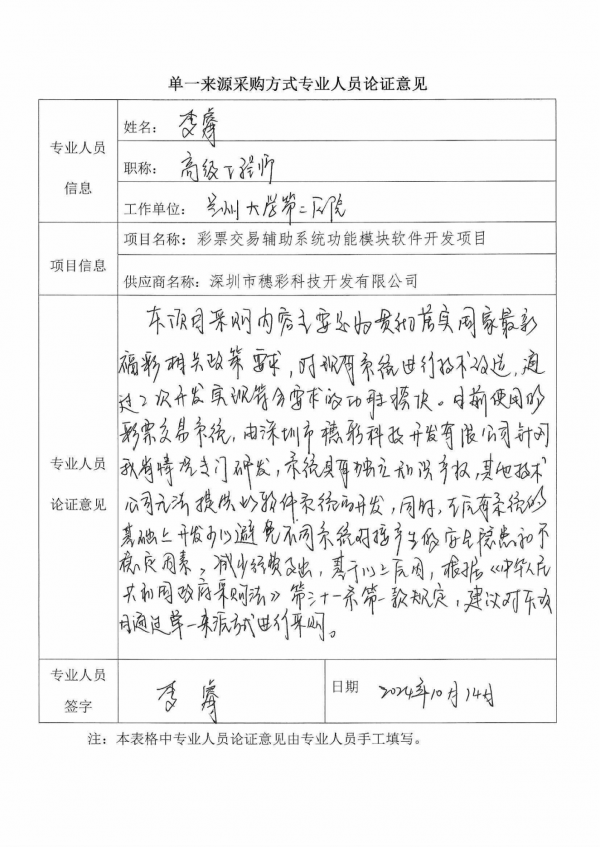 单一来源采购方式专业人员论证意见
专业人员
信息
姓名：李睿
职称：高级工程师
工作单位：兰州大学第二医院
项目信息
项目名称：彩票交易辅助系统功能模块软件开发项目
供应商名称：深圳市穗彩科技开发有限公司
专业人员
论证意见
本项目采购内容主要是为贯彻落实国家最新
福彩相关政策要求，对现有系统进行技术改造，通
过二次开发实现符合要求的功能模块。目前使用的
彩票交易系统，由深圳市穗彩科技开发有限公司针对
我省情况专门研发，系统具有独立知识产权，其他技术
公司无法提供此软件系统的开发，同时，在原有系统的
基础上开发可以避免不同系统对接产生的安全隐患和不
稳定因素，减少经费支出，基于以上原因，根据《中华人民
共和国政府采购法》第三十一条第一款规定，建议对本项
目通过单一来源方式进行采购。
专业人员
签字
李睿
日期 2024年10月14日
注：本表格中专业人员论证意见由专业人员手工填写。